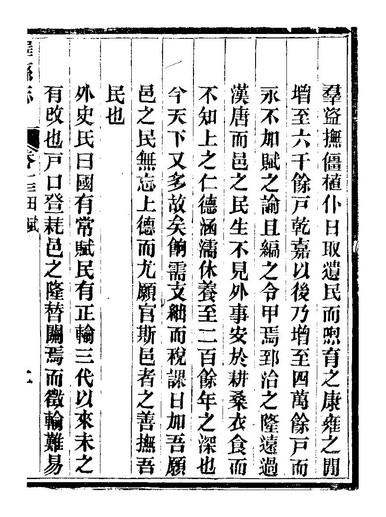 羣盜撫僵植仆日取遺民而煦育之康雍之閒
增至六千餘戸乾嘉以後乃增至四萬餘戸而
永不加賦之諭且編之令甲焉郅治之隆遠過
漢唐而邑之民生不見外事安於耕桑衣食而
不知上之仁德涵濡休養至二百餘年之深也
今天下又多故矣餉需支絀而稅課日加吾願
邑之民無忘上德而尤願官斯邑者之善撫吾
民也
外史氏曰國有常賦民有正輸三代以來未之
有改也戸口登耗邑之隆替關焉而徵輸難易
田賦